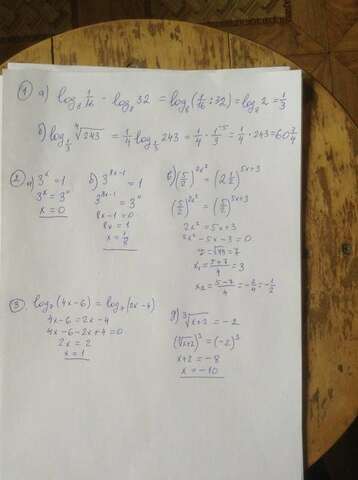 ① а) log₈ 1/16 - log₈ 32 = log₈(1/16 : 32) = log₈ 2 = 1/3
б) log_{1/3} ⁴√243 = 1/4 log_{1/3} 243 = 1/4 · 1/3⁻⁵ = 1/4 · 243 = 60 3/4
② а) 3ˣ = 1
3ˣ = 3⁰
x = 0
б) 3^{8x-1} = 1
3^{8x-1} = 3⁰
8x - 1 = 0
8x = 1
x = 1/8
в) (5/2)^{2x²} = (2 1/2)^{5x+3}
(5/2)^{2x²} = (5/2)^{5x+3}
2x² = 5x+3
2x² - 5x - 3 = 0
= √49 = 7
x₁ = 5+7/4 = 3
x₂ = 5-7/4 = -2/4 = -1/2
③ log₇(4x-6) = log₇(2x-4)
4x-6 = 2x-4
4x-6-2x+4=0
2x = 2
x = 1
д) ³√x+2 = -2
(³√x+2)³ = (-2)³
x+2 = -8
x = -10